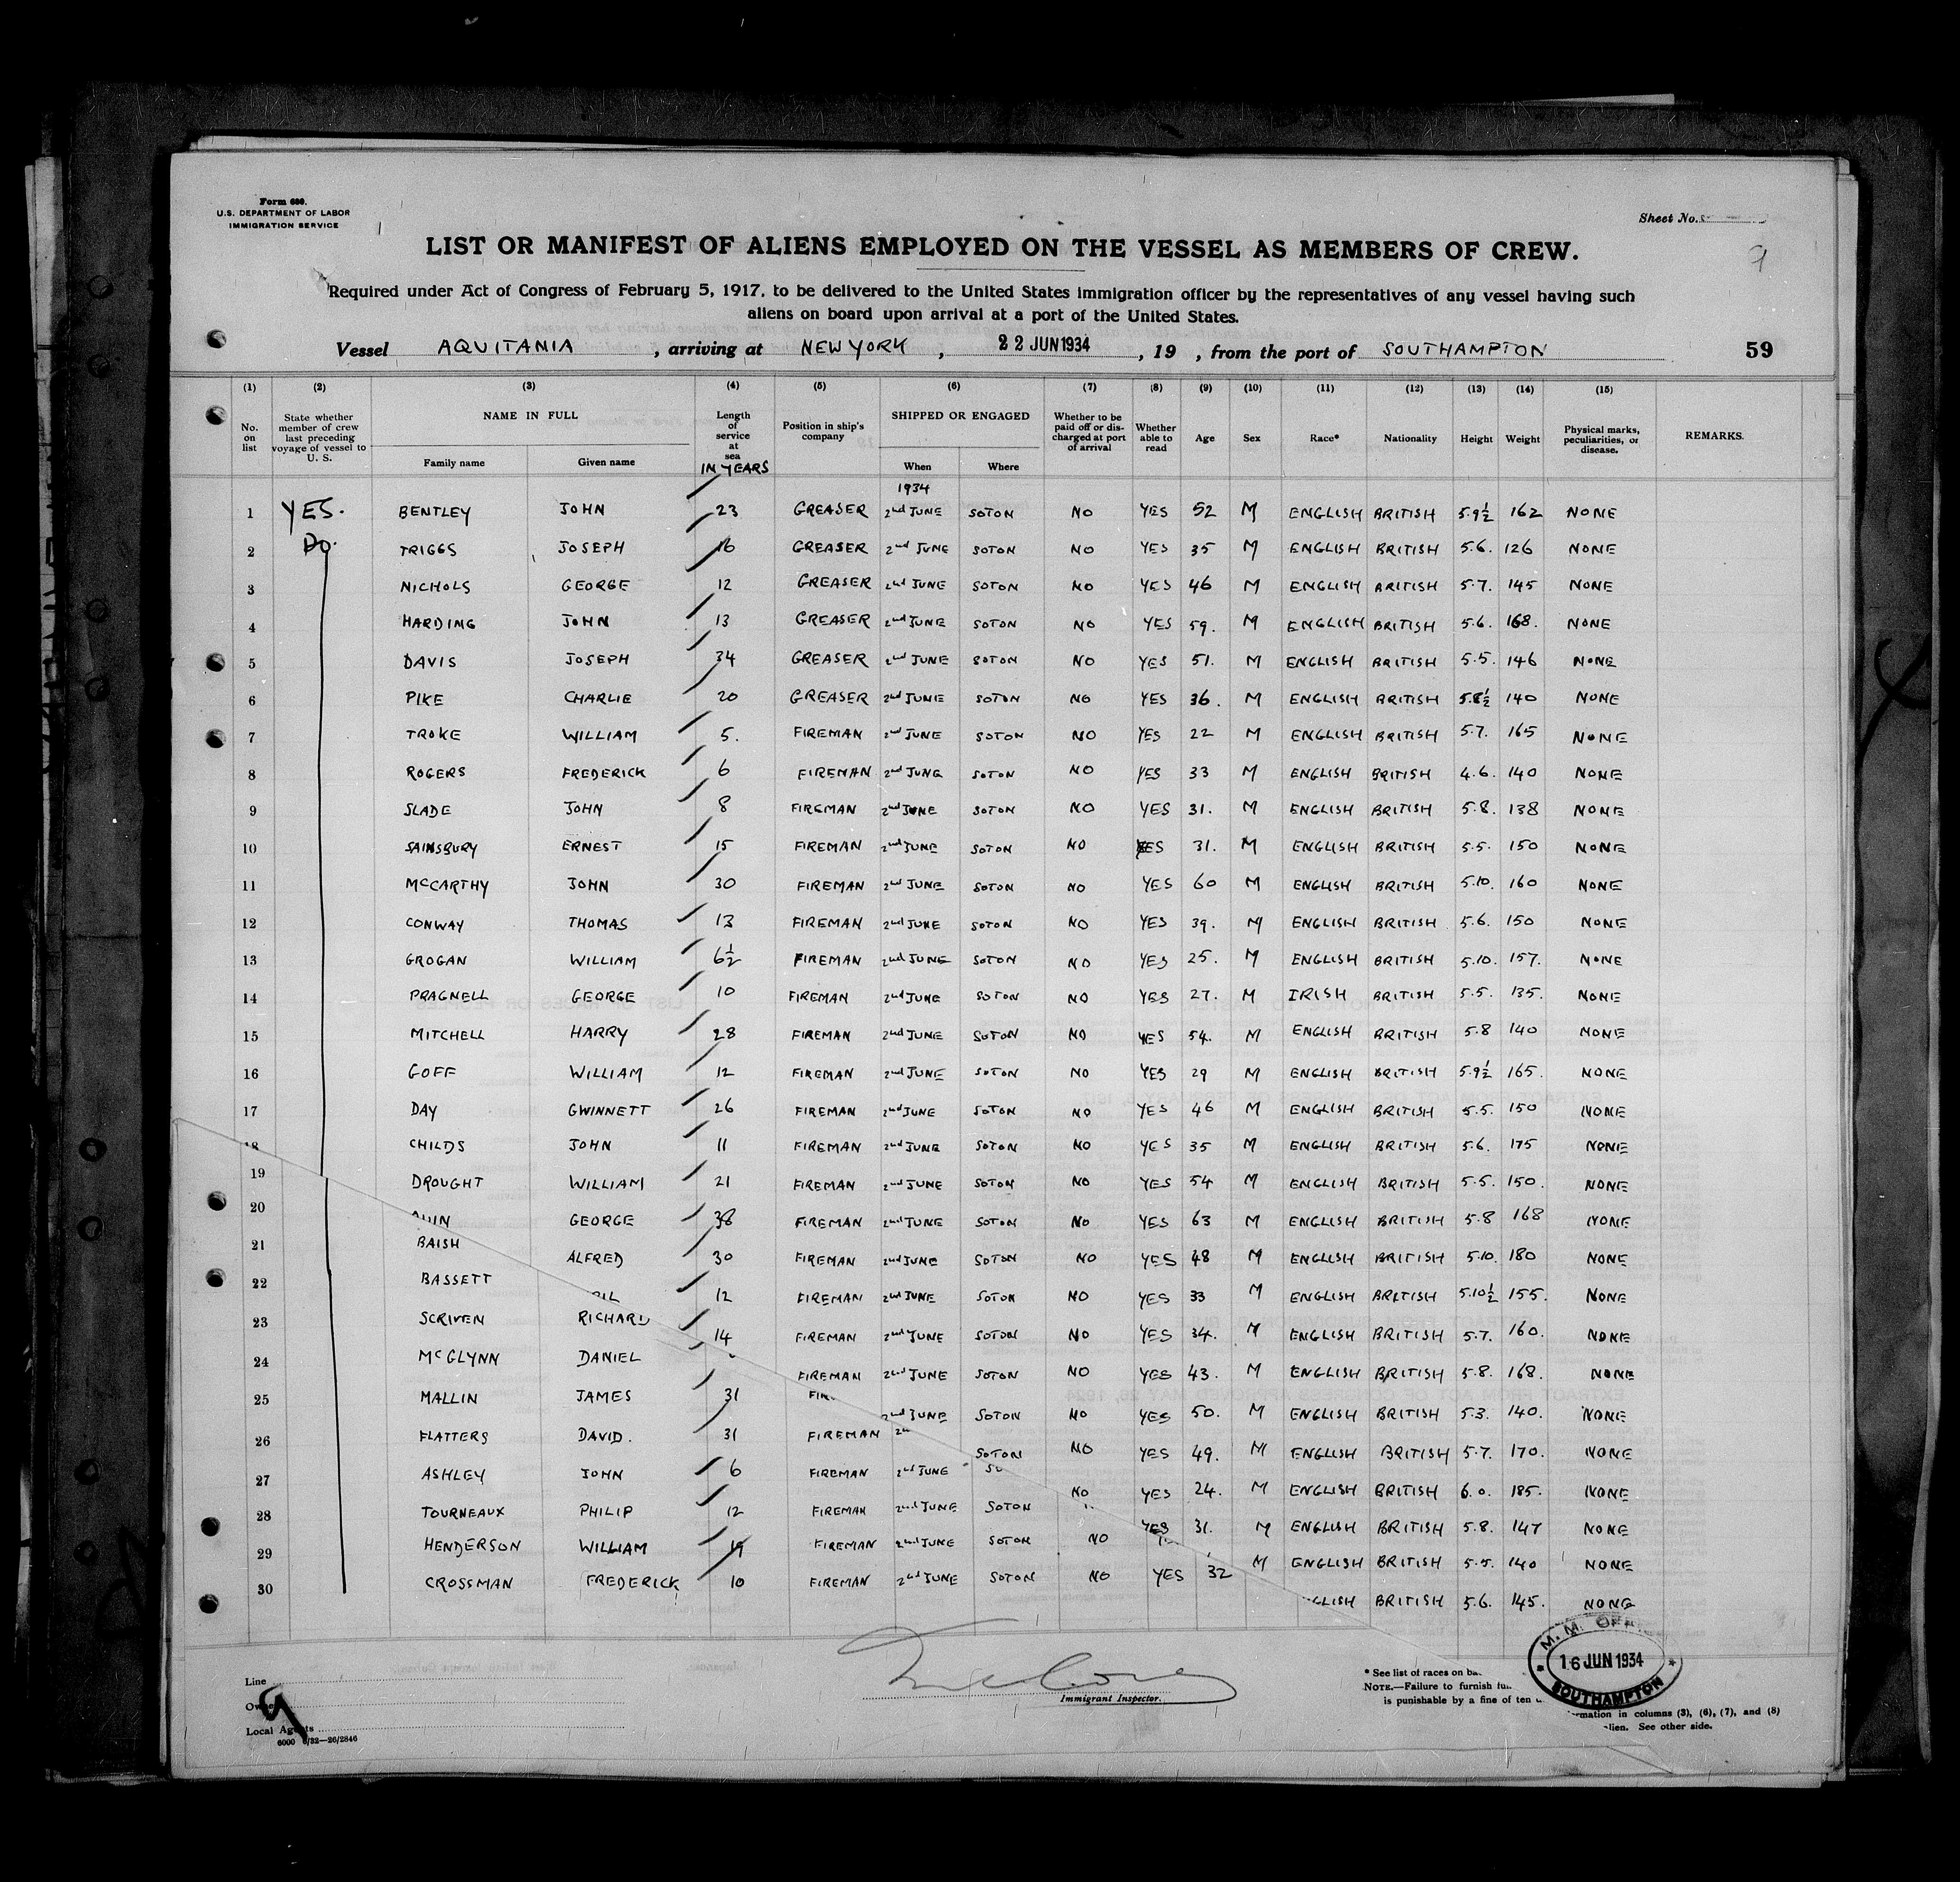 Form 680.
U.S. DEPARTMENT OF LABOR
IMMIGRATION SERVICE
Sheet No.
9
LIST OR MANIFEST OF ALIENS EMPLOYED ON THE VESSEL AS MEMBERS OF CREW.
Required under Act of Congress of February 5, 1917, to be delivered to the United States immigration officer by the representatives of any vessel having such
aliens on board upon arrival at a port of the United States.
Vessel AQUITANIA, arriving at NEW YORK, 22 JUN 1934, 19 , from the port of SOUTHAMPTON 59
(1) (2) (3) (4) (5) (6) (7) (8) (9) (10) (11) (12) (13) (14) (15)
No. on list State whether member of crew last preceding voyage of vessel to U. S. NAME IN FULL Family name Given name Length of service at sea IN YEARS Position in ship's company SHIPPED OR ENGAGED When Where Whether to be paid off or discharged at port of arrival Whether able to read Age Sex Race* Nationality Height Weight Physical marks, peculiarities, or disease. REMARKS.
1934
1 YES. BENTLEY JOHN 23 GREASER 2nd JUNE SOTON NO YES 52 M ENGLISH BRITISH 5.9½ 162 NONE
2 DO. TRIGGS JOSEPH 16 GREASER 2nd JUNE SOTON NO YES 35 M ENGLISH BRITISH 5.6. 126 NONE
3 NICHOLS GEORGE 12 GREASER 2nd JUNE SOTON NO YES 46 M ENGLISH BRITISH 5.7. 145 NONE
4 HARDING JOHN 13 GREASER 2nd JUNE SOTON NO YES 59. M ENGLISH BRITISH 5.6. 168. NONE
5 DAVIS JOSEPH 34 GREASER 2nd JUNE SOTON NO YES 51. M ENGLISH BRITISH 5.5. 146 NONE
6 PIKE CHARLIE 20 GREASER 2nd JUNE SOTON NO YES 36. M ENGLISH BRITISH 5.8½ 140 NONE
7 TROKE WILLIAM 5. FIREMAN 2nd JUNE SOTON NO YES 22 M ENGLISH BRITISH 5.7. 165 NONE
8 ROGERS FREDERICK 6 FIREMAN 2nd JUNE SOTON NO YES 33 M ENGLISH BRITISH 4.6. 140 NONE
9 SLADE JOHN 8 FIREMAN 2nd JUNE SOTON NO YES 31. M ENGLISH BRITISH 5.8. 138 NONE
10 SAINSBURY ERNEST 15 FIREMAN 2nd JUNE SOTON NO YES 31. M ENGLISH BRITISH 5.5. 150 NONE
11 McCARTHY JOHN 30 FIREMAN 2nd JUNE SOTON NO YES 60 M ENGLISH BRITISH 5.10. 160 NONE
12 CONWAY THOMAS 13 FIREMAN 2nd JUNE SOTON NO YES 39. M ENGLISH BRITISH 5.6. 150 NONE
13 GROGAN WILLIAM 6½ FIREMAN 2nd JUNE SOTON NO YES 25. M ENGLISH BRITISH 5.10. 157. NONE
14 PRAGNELL GEORGE 10 FIREMAN 2nd JUNE SOTON NO YES 27. M IRISH BRITISH 5.5. 135. NONE
15 MITCHELL HARRY 28 FIREMAN 2nd JUNE SOTON NO YES 54. M ENGLISH BRITISH 5.8 140 NONE
16 GOFF WILLIAM 12 FIREMAN 2nd JUNE SOTON NO YES 29 M ENGLISH BRITISH 5.9½ 165. NONE
17 DAY GWINNETT 26 FIREMAN 2nd JUNE SOTON NO YES 46 M ENGLISH BRITISH 5.5. 150 NONE
18 CHILDS JOHN 11 FIREMAN 2nd JUNE SOTON NO YES 35 M ENGLISH BRITISH 5.6. 175 NONE
19 DROUGHT WILLIAM 21 FIREMAN 2nd JUNE SOTON NO YES 54 M ENGLISH BRITISH 5.5. 150. NONE
20 GEORGE 38 FIREMAN 2nd JUNE SOTON NO YES 63 M ENGLISH BRITISH 5.8 168 NONE
21 BAISH ALFRED 30 FIREMAN 2nd JUNE SOTON NO YES 48 M ENGLISH BRITISH 5.10. 180 NONE
22 BASSETT 12 FIREMAN 2nd JUNE SOTON NO YES 33 M ENGLISH BRITISH 5.10½ 155. NONE
23 SCRIVEN RICHARD 14 FIREMAN 2nd JUNE SOTON NO YES 34. M ENGLISH BRITISH 5.7. 160. NONE
24 McGLYNN DANIEL FIREMAN 2nd JUNE SOTON NO YES 43. M ENGLISH BRITISH 5.8. 168. NONE
25 MALLIN JAMES 31 FIR 2nd JUNE SOTON NO YES 50. M ENGLISH BRITISH 5.3. 140. NONE
26 FLATTERS DAVID. 31 FIREMAN 2nd SOTON NO YES 49. M ENGLISH BRITISH 5.7. 170. NONE
27 ASHLEY JOHN 6 FIREMAN 2nd JUNE SO NO YES 24. M ENGLISH BRITISH 6.0. 185. NONE
28 TOURNEAUX PHILIP 12 FIREMAN 2nd JUNE SOTON YES 31. M ENGLISH BRITISH 5.8. 147 NONE
29 HENDERSON WILLIAM 19 FIREMAN 2nd JUNE SOTON NO M ENGLISH BRITISH 5.5. 140 NONE
30 CROSSMAN FREDERICK 10 FIREMAN 2nd JUNE SOTON NO YES 32 GLISH BRITISH 5.6. 145. NONE
Line
Owners
Local Agents
6000 6/32—26/2846
9
Immigrant Inspector.
* See list of races on ba
NOTE.—Failure to furnish ful
is punishable by a fine of ten
rmation in columns (3), (6), (7), and (8)
lien. See other side.
M. M. OFF
16 JUN 1934
SOUTHAMPTON